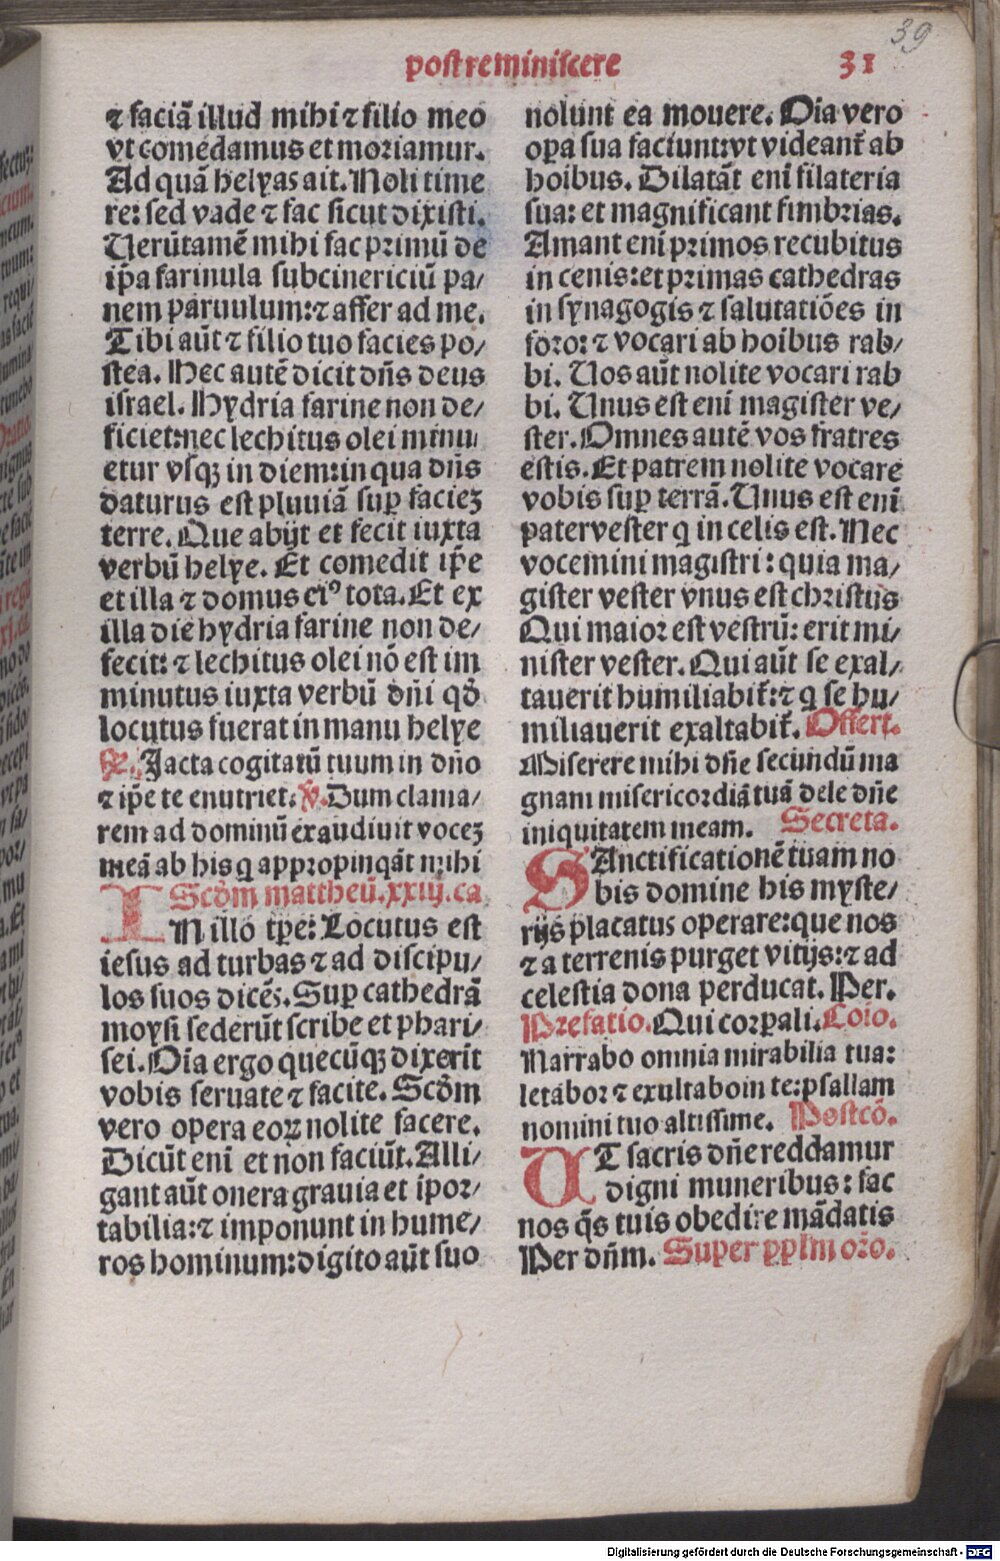 39
post reminiscere 31
⁊ faciā illud mihi ⁊ filio meo
vt comedamus et moriamur.
Ad quā helyas ait. Noli time
re: sed vade ⁊ fac sicut dixisti.
Uerūtamē mihi fac primū de
ip̄a farinula subcinericiū pa/
nem paruulum: ⁊ affer ad me.
Tibi aūt ⁊ filio tuo facies po/
stea. Hec autē dicit dn̄s deus
israel. Hydria farine non de/
ficiet: nec lechitus olei minu
etur vsqꝫ in diem: in qua dn̄s
daturus est pluuiā suꝑ faciez
terre. Que abijt et fecit iuxta
verbū helye. Et comedit ip̄e
et illa ⁊ domus eiꝰ tota. Et ex
illa die hydria farine non de/
fecit: ⁊ lechitus olei nō est im
minutus iuxta verbū dn̄i qd̄
locutus fuerat in manu helye
℟. Jacta cogitatū tuum in dn̄o
⁊ ip̄e te enutriet. ℣. Dum clama/
rem ad dominū exaudiuit vocez
meā ab his q appropinqāt mihi
Scd̄m mattheū. xxiij. ca
IN illo tp̄e: Locutus est
iesus ad turbas ⁊ ad discipu/
los suos dicēs. Suꝑ cathedrā
moysi sederūt scribe et phari/
sei. Oīa ergo quecūqꝫ dixerīt
vobis seruate ⁊ facite. Scd̄m
vero opera eoꝝ nolite facere.
Dicūt enī et non faciūt. Alli/
gant aūt onera grauia et īpor/
tabilia: ⁊ imponunt in hume/
ros hominum: digito aūt suo
nolunt ea mouere. Oīa vero
oꝑa sua faciunt: vt videant̄ ab
hoībus. Dilatāt enī filateria
sua: et magnificant fimbrias.
Amant enī primos recubitus
in cenis: et primas cathedras
in synagogis ⁊ salutatiōes in
foro: ⁊ vocari ab hoībus rab/
bi. Uos aūt nolite vocari rab
bi. Unus est enī magister ve/
ster. Omnes autē vos fratres
estis. Et patrem nolite vocare
vobis suꝑ terrā. Unus est enī
pater vester q in celis est. Nec
vocemini magistri: quia ma/
gister vester vnus est christus
Qui maior est vestrū: erit mi/
nister vester. Qui aūt se exal/
tauerit humiliabit̄: ⁊ q se hu/
miliauerit exaltabit̄. Offert.
Miserere mihi dn̄e secundū ma
gnam misericordiā tuā dele dn̄e
iniquitatem meam. Secreta.
SAnctificationē tuam no
bis domine his myste/
rijs placatus operare: que nos
⁊ a terrenis purget vitijs: ⁊ ad
celestia dona perducat. Per.
Prefatio. Qui corꝑali. Cōio.
Narrabo omnia mirabilia tua:
letabor ⁊ exultabo in te: psallam
nomini tuo altissime. Postcō.
UT sacris dn̄e reddamur
digni muneribus: fac
nos qs̄ tuis obedire mādatis
Per dn̄m. Super ppl̄m or̄o.
Digitalisierung gefördert durch die Deutsche Forschungsgemeinschaft - DFG